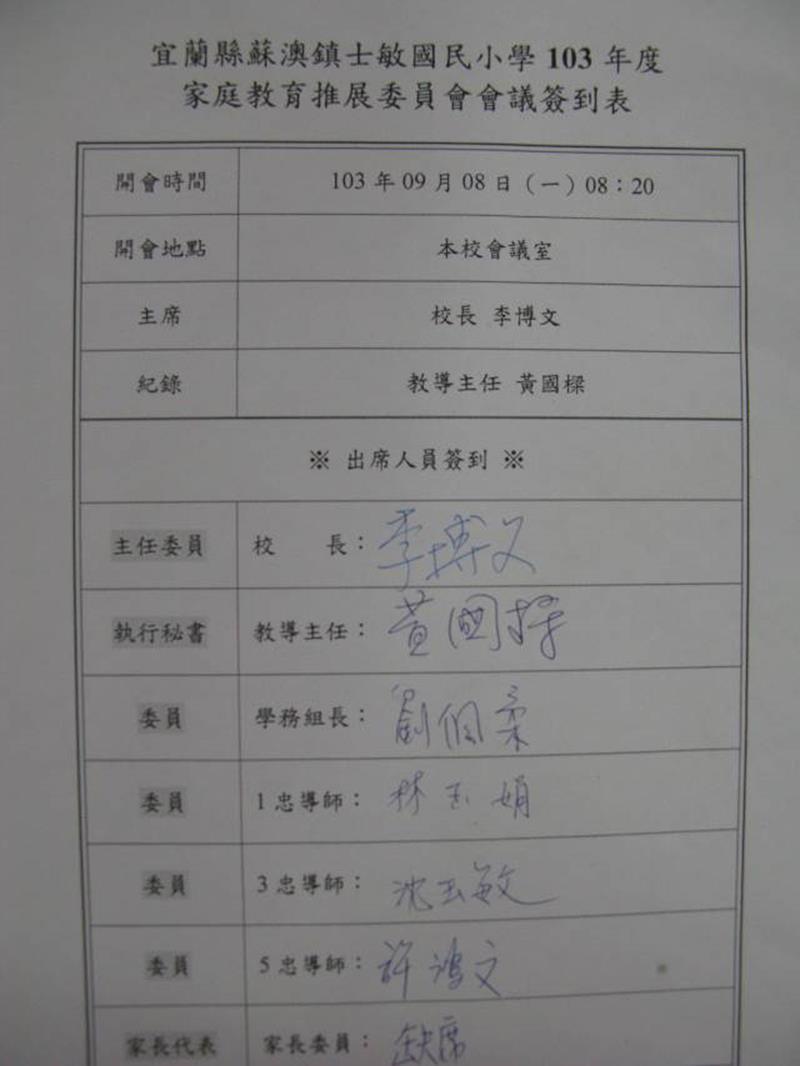 宜蘭縣蘇澳鎮士敏國民小學 103 年度
家庭教育推展委員會會議簽到表
開會時間 103 年 09 月 08 日（一）08：20
開會地點 本校會議室
主席 校長 李博文
紀錄 教導主任 黃國樑
※ 出席人員簽到 ※
主任委員 校 長： 李博文
執行秘書 教導主任： 黃國樑
委員 學務組長： 劉佩柔
委員 1 忠導師： 林玉娟
委員 3 忠導師： 沈玉敏
委員 5 忠導師： 許鴻文
家長代表 家長委員： 缺席